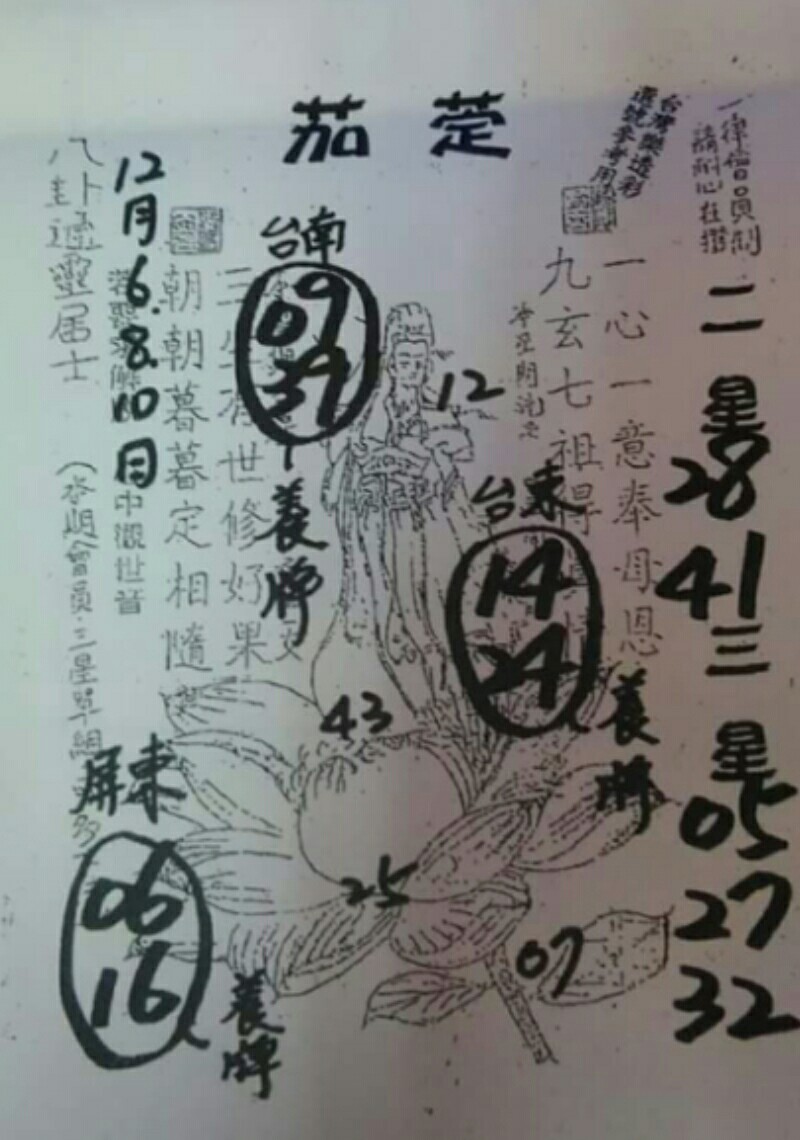 茄萣
台灣樂透彩
選號參考用
一律會員制
請耐心在猜
二星
28
41
三星
05
27
32
一心一意奉母恩
九玄七祖得
台東
14
24
養牌
12
台南
09
39
養牌
三生有世修好果
朝朝暮暮定相隨
12月6.8.10日
中觀世音
八卦通靈居士
43
25
07
屏東
06
16
養牌